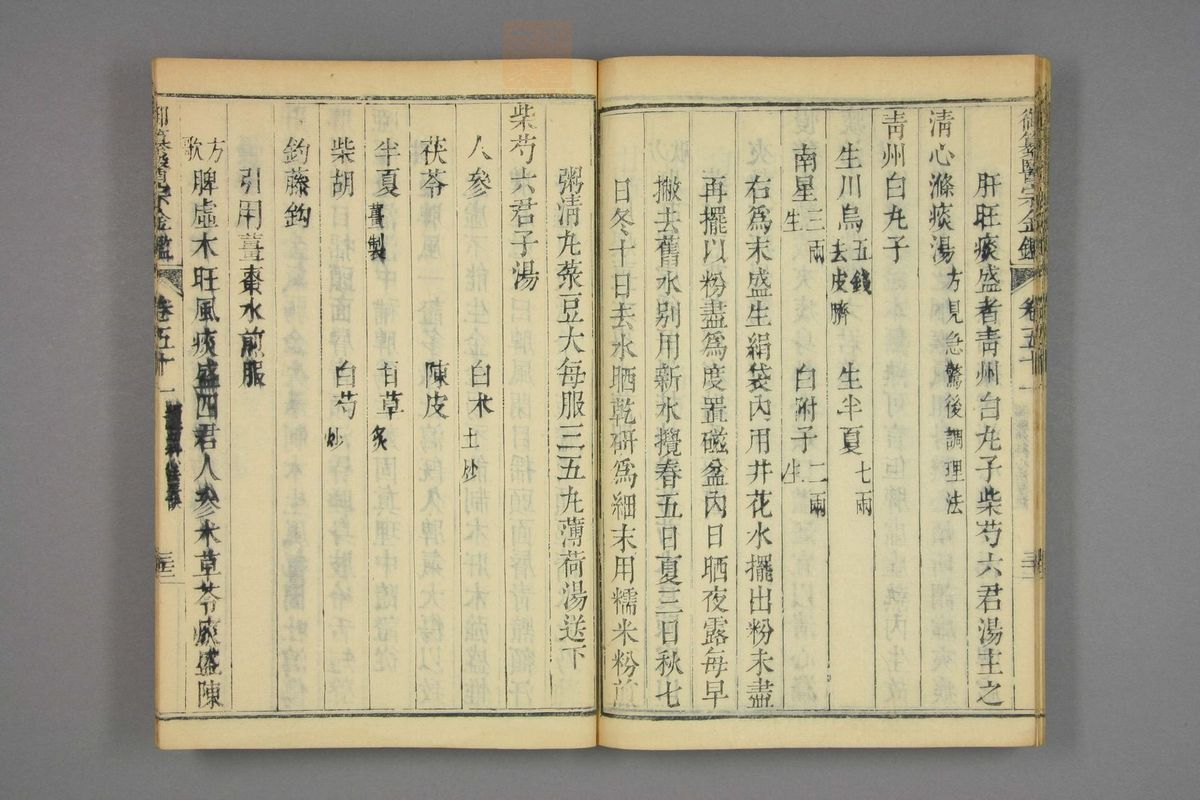 御纂醫宗金鑑 卷五十一
肝旺痰盛者青州白丸子柴芍六君湯主之
清心滌痰湯 方見急驚後調理法
青州白丸子
生川烏 五錢去皮臍 生半夏 七兩
南星 三兩生 白附子 二兩生
右爲末盛生絹袋內用井花水擺出粉未盡
再擺以粉盡爲度置磁盆內日晒夜露每早
撇去舊水別用新水攪春五日夏三日秋七
日冬十日去水晒乾研爲細末用糯米粉煎
粥清丸菉豆大每服三五丸薄荷湯送下
柴芍六君子湯
人參 白朮 土炒
茯苓 陳皮
半夏 薑製 甘草 炙
柴胡 白芍 炒
鈎藤鈎
引用薑棗水煎服
方歌 脾虛木旺風痰盛四君人參朮草苓痰盛陳
御纂醫宗金鑑 卷五十一